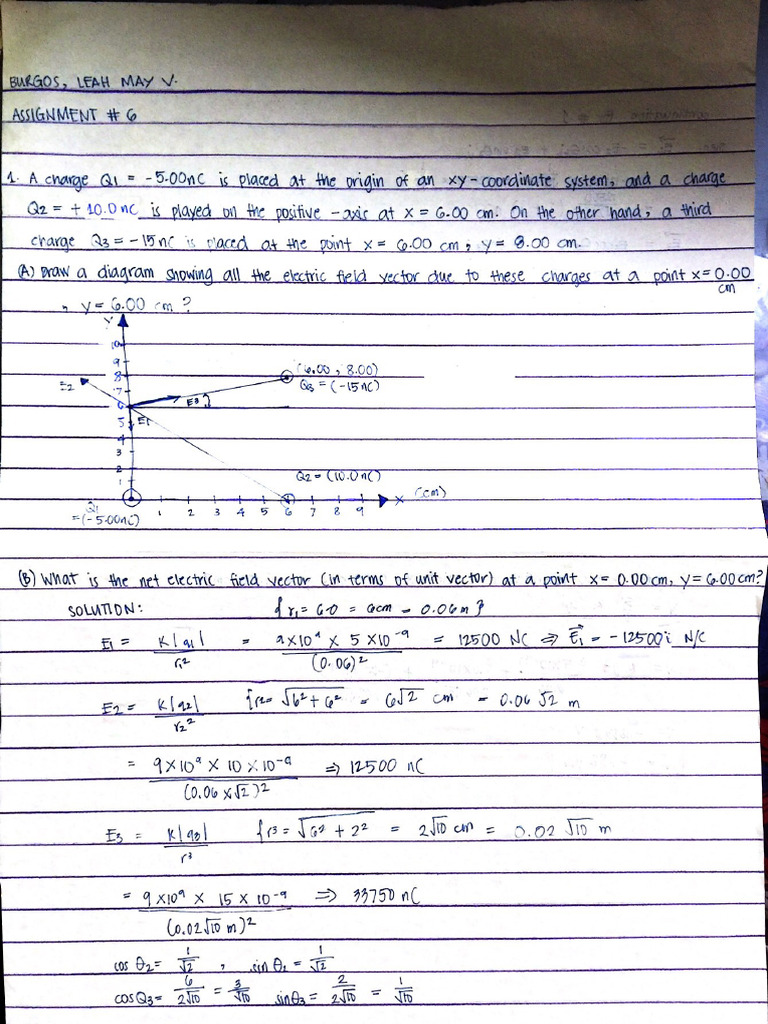 BURGOS, LEAH MAY V.
ASSIGNMENT # 6
1. A charge Q1 = -5.00nC is placed at the origin of an xy-coordinate system, and a charge
Q2 = +10.0nC is played on the positive -axis at x = 6.00 cm. On the other hand, a third
charge Q3 = -15nC is placed at the point x = 6.00 cm, y = 8.00 cm.
(A) Draw a diagram showing all the electric field vector due to these charges at a point x = 0.00 cm
, y = 6.00 cm?
Y
10
9
8
7
6
5
4
3
2
1
E2
(6.00, 8.00)
Q3 = (-15nC)
E3
E1
Q2 = (10.0nC)
Q1
= (-5.00nC)
1 2 3 4 5 6 7 8 9 X (cm)
(B) What is the net electric field vector (in terms of unit vector) at a point x = 0.00cm, y = 6.00cm?
SOLUTION: { r1 = 6.0 = 6cm = 0.06m }
E1 = K|q1| / r1² = 9×10⁹ × 5×10⁻⁹ / (0.06)² = 12500 NC ⇒ E⃗1 = -12500i N/C
E2 = K|q2| / r2² { r2 = √6²+6² = 6√2 cm = 0.06√2 m
= 9×10⁹ × 10×10⁻⁹ / (0.06×√2)² ⇒ 12500 nC
E3 = K|q3| / r³ { r3 = √6²+2² = 2√10 cm = 0.02√10 m
= 9×10⁹ × 15×10⁻⁹ / (0.02√10 m)² ⇒ 33750 nC
cos θ2 = 1/√2 , sin θ2 = 1/√2
cosQ3 = 6/2√10 = 3/√10 sinθ3 = 2/2√10 = 1/√10